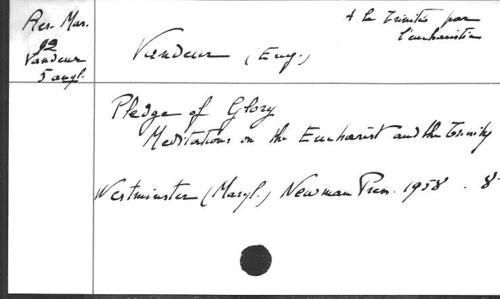 Res. Mar.
92
Vandeur
5 angl.
A la Trinité par
l'eucharistie
Vandeur (Eug.)
Pledge of Glory
Meditations on the Eucharist and the Trinity
Westminster (Maryl.) Newman Press. 1958. 8